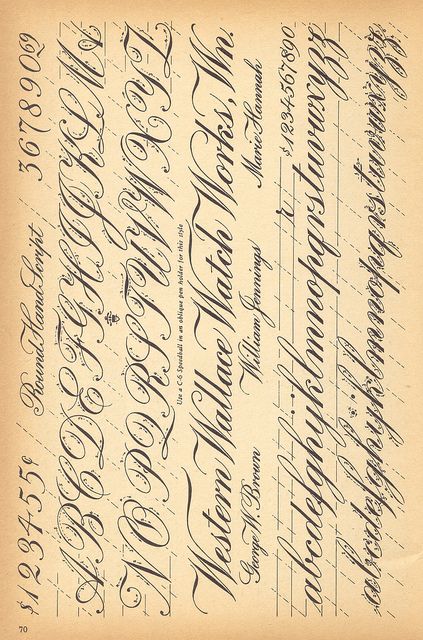 $123455¢ Round Hand Script 3678909
ABCDEFGHIJKLMA
NOPQRSTUVWXYZ
Use a C-5 Speedball in an oblique pen holder for this style
Western Wallace Watch Works, Wn.
George W. Brown William Jennings Marie Hannah
$1234567890
abcdefghijklmnopqrstuvwxyz
abcdefghijklmnopqrstuvwxyz
70